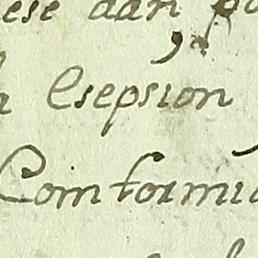 ese dan
Esepsion
Comformi